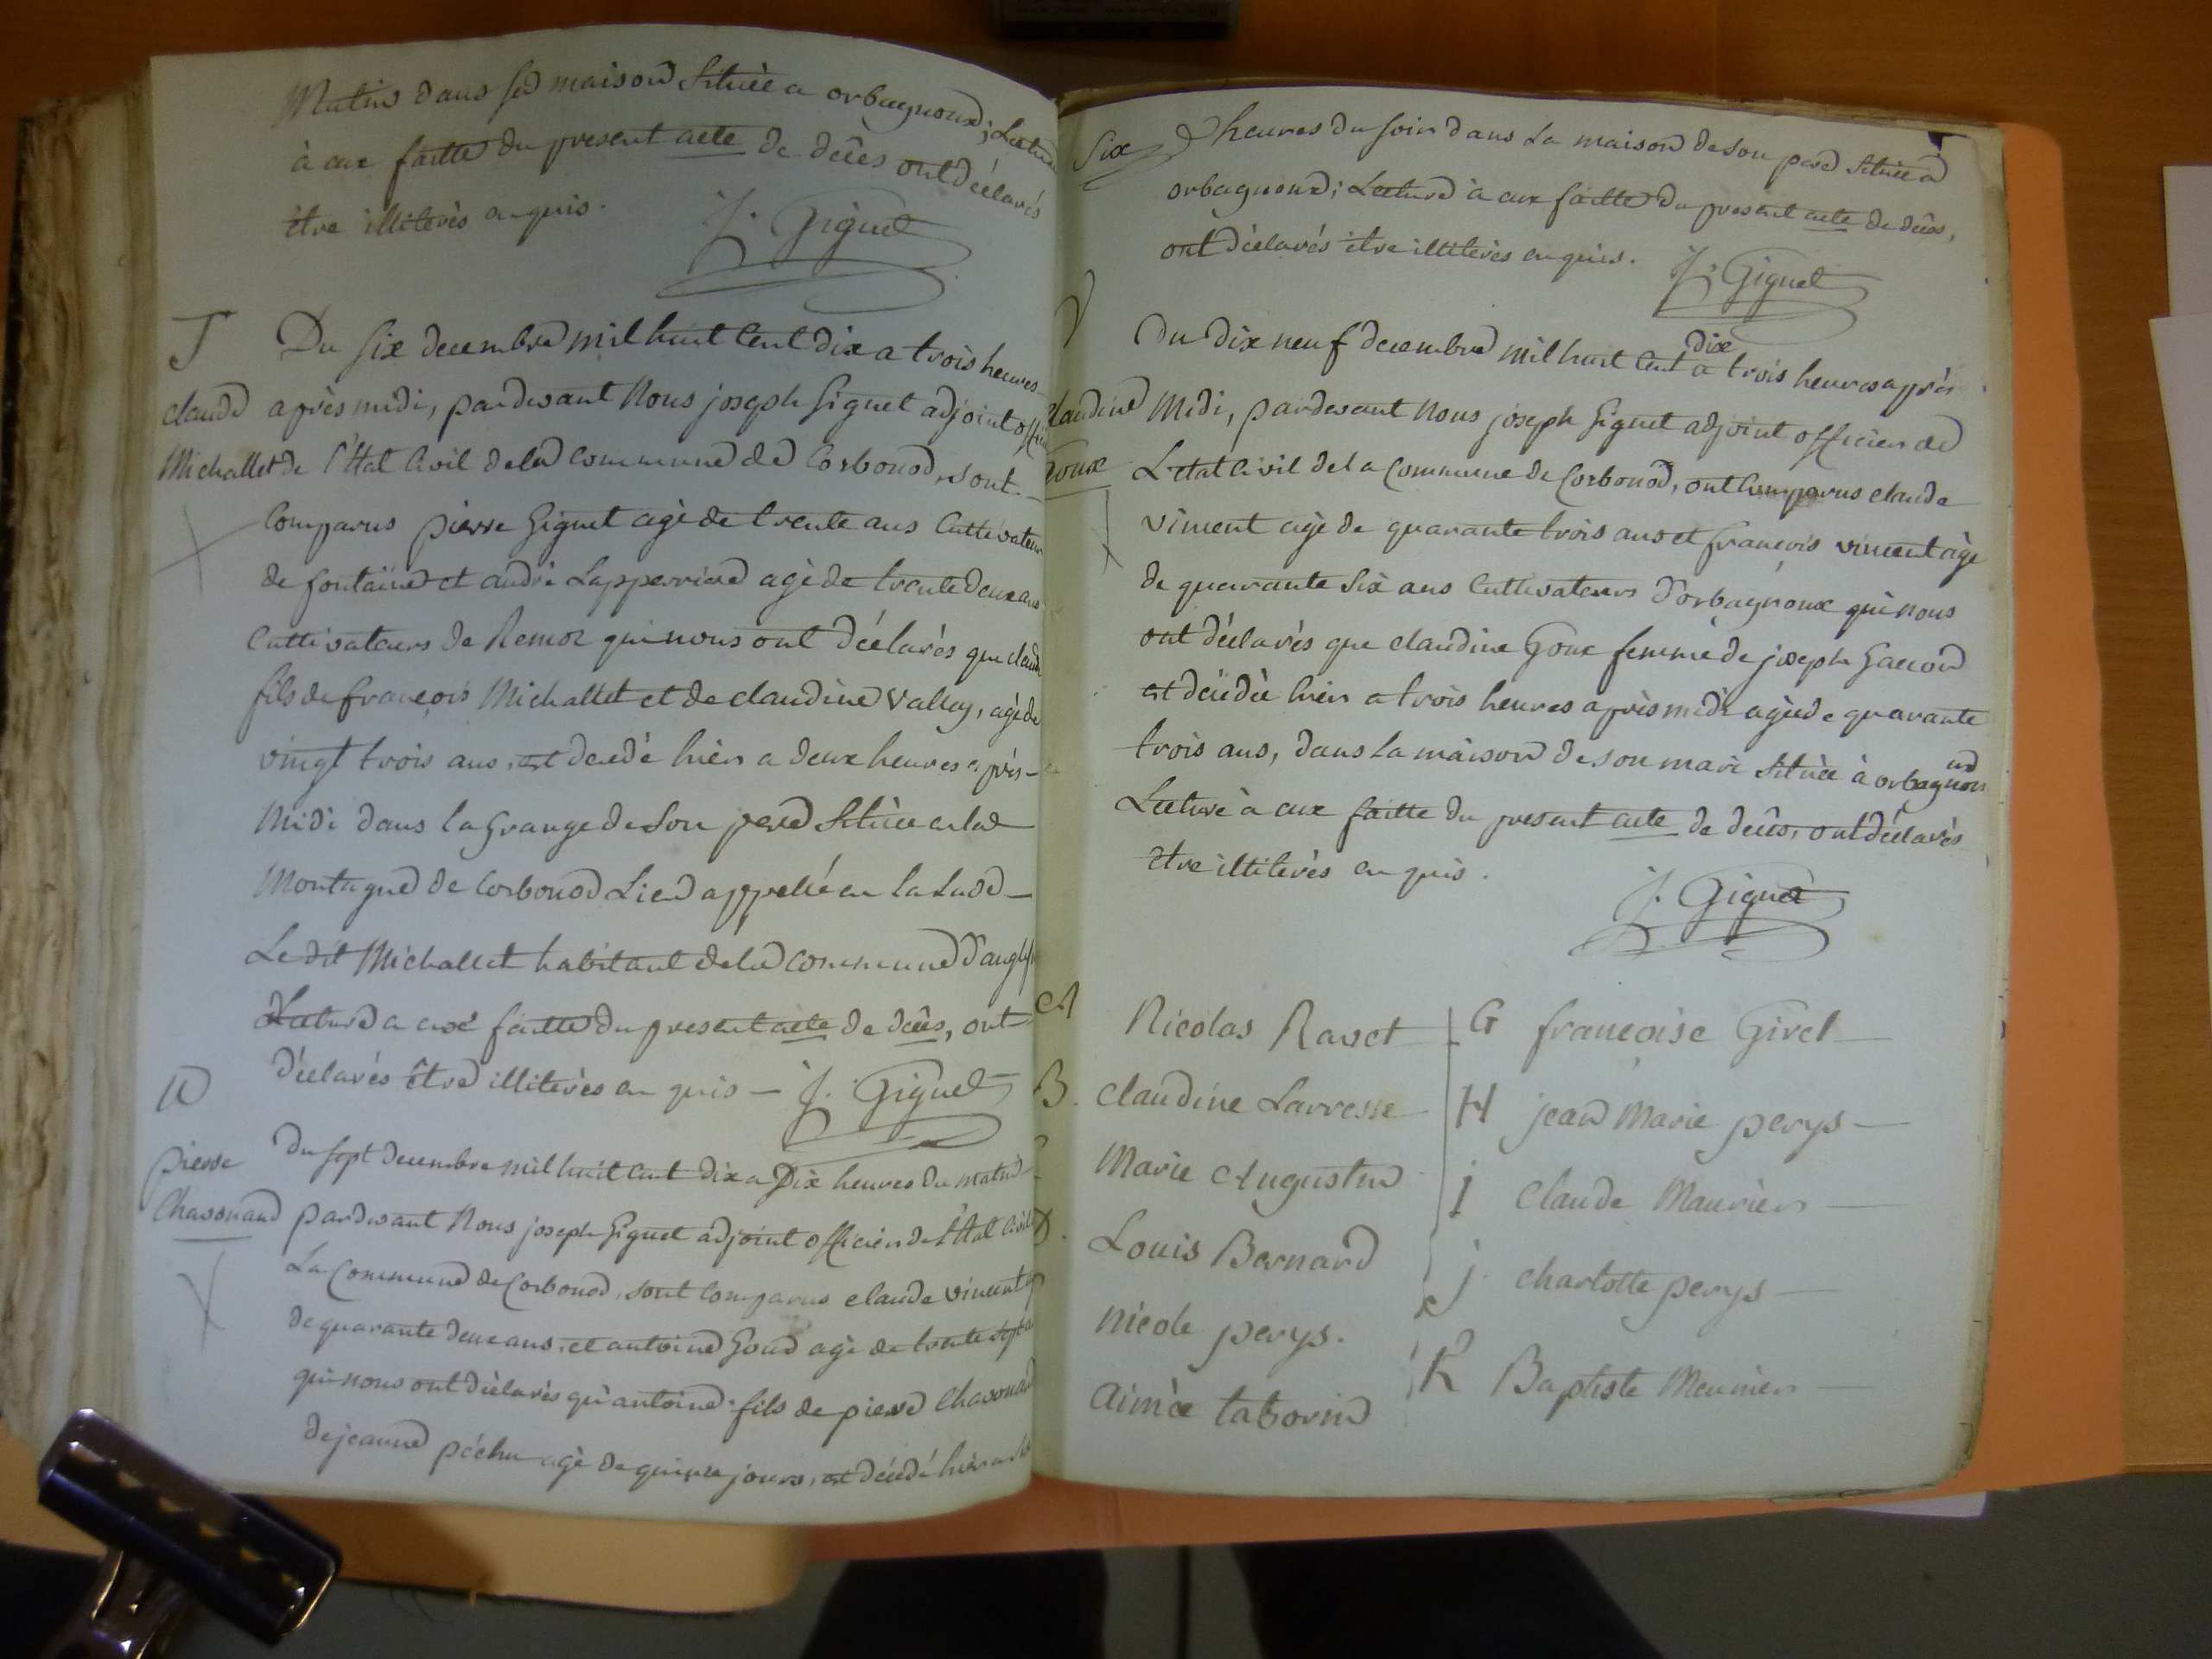 Matins dans sa maison Située a orbagnoux; Lecture
à eux faitte du present acte de décès ont déclarés
être illiterés enquis. J. Giguet
T Du Six decembre mil huit Cent dix a trois heures
claude après midi, pardevant Nous joseph Giguet adjoint offic
Michallet de l'Etat Civil de la Commune de Corbonod, sont
Comparus pierre Giguet agé de trente ans Cultivateur
de fontaine et andré Lapperriere agé de trente deux ans
Cultivateurs de Remoz qui nous ont déclarés que claude
fils de françois Michallet et de claudine Valley, agé de
vingt trois ans, est decedé hier a deux heures après
Midi dans la Grange de Son pere Située en la
Montagne de Corbonod Lieu appellé en la
Le dit Michallet habitant de la Commune d'anglef
Lecture a eux faitte du present acte de décès, ont
déclarés être illiterés enquis J. Giguet
U
pierre Du sept decembre mil huit cent dix a Dix heures du matin
Chavonand pardevant Nous joseph Giguet adjoint officier de l'Etat Civil
La Commune de Corbonod, sont Comparus claude vincent
de quarante deux ans, et antoine Goux agé de trente sept a
qui nous ont déclarés qu'antoine fils de pierre Chavonand
de jeanne péchu agé de quinze jours, est décédé hier a
Six heures du soir dans La maison de son pere Située a
orbagnoux; Lecture à eux faitte du present acte de décès,
ont déclarés être illiterés enquis. J. Giguet
V Du dix neuf decembre mil huit Cent dix a trois heures après
claudine Midi, pardevant Nous joseph Giguet adjoint officier de
Goux L'etat Civil de la Commune de Corbonod, ont Comparus claude
vincent agé de quarante trois ans et françois vincent agé
de quarante Six ans Cultivateurs d'orbagnoux qui nous
ont déclarés que claudine Goux femme de joseph
est décédée hier a trois heures après midi agée de quarante
trois ans, dans La maison de son mari Située à orbagnoux
Lecture à eux faitte du present acte de décès, ont déclarés
être illiterés enquis.
J. Giguet
A Nicolas Ravet
B. claudine Larresse
Marie Augustine
D. Louis Bernard
nicole perys.
aimée taborin
G françoise Giret
H jean Marie perys
I Claude Maurier
j charlotte perys
K Baptiste Meunier